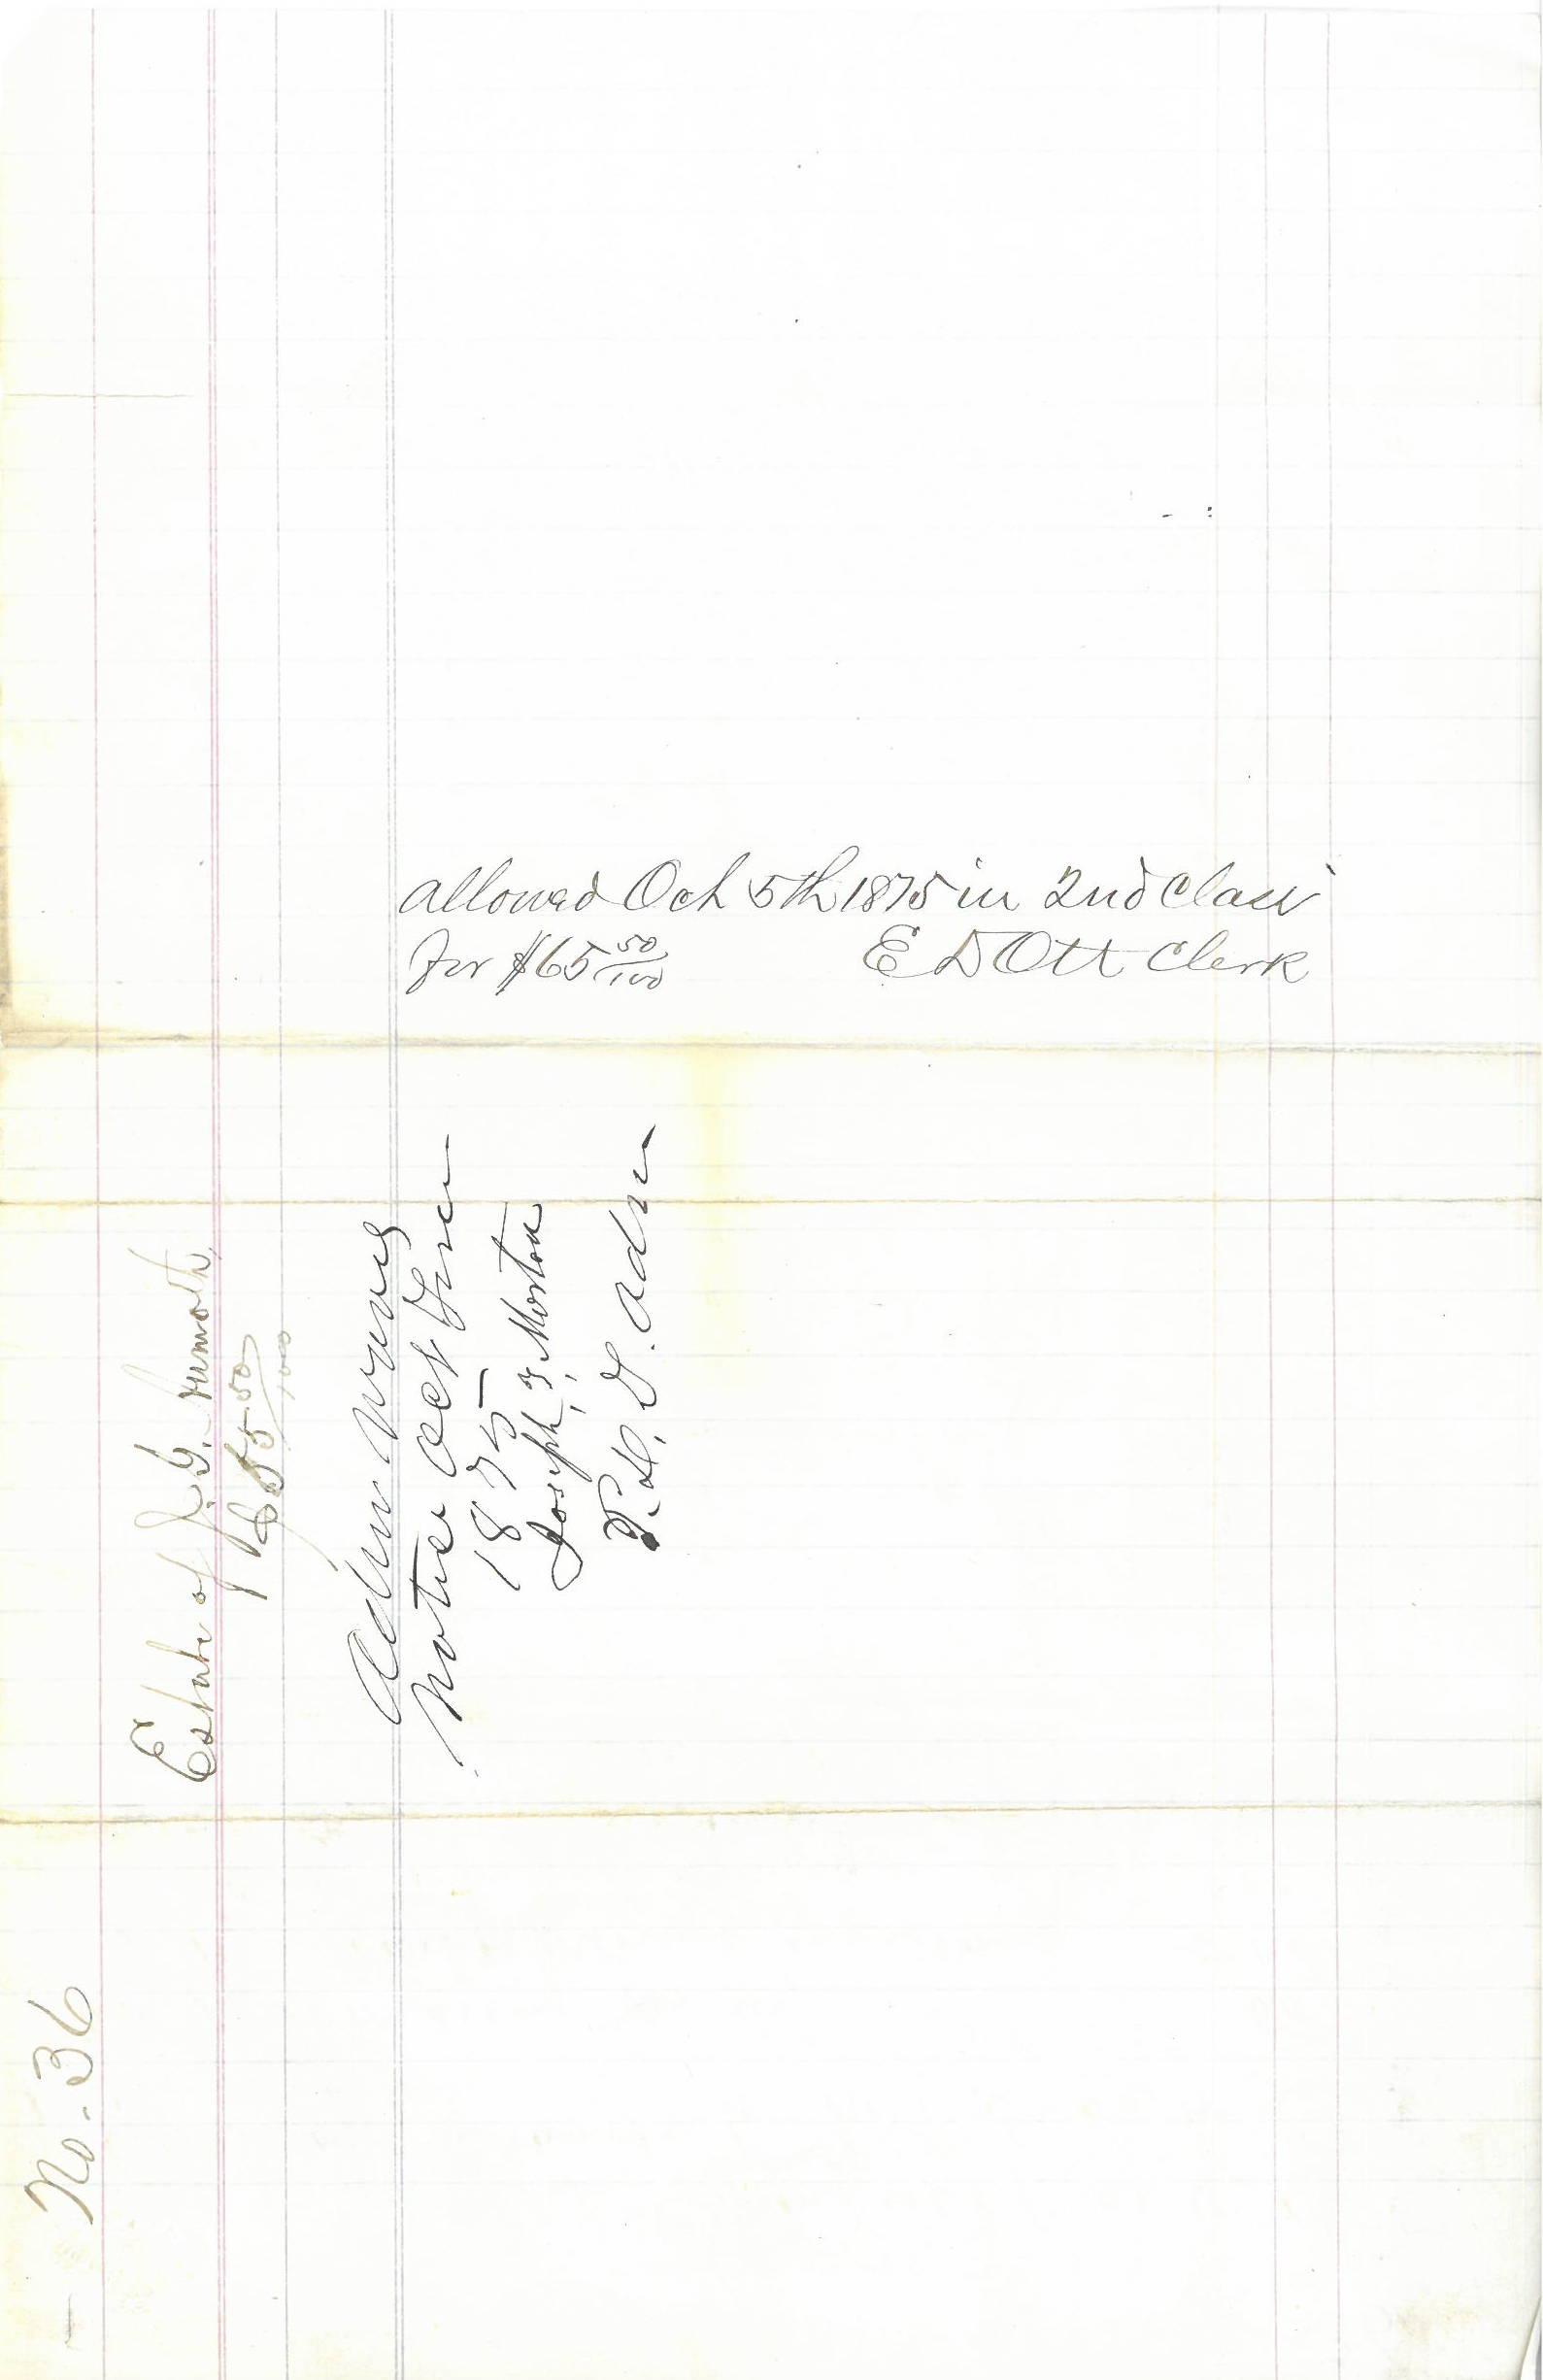 allowed Oct 5th 1875 in 2nd Class
for $65 50/100 E D Ott Clerk
Estate of
$65 50/100
Admr waives
Notice Oct
1875
Joseph Morton
Adm
No. 36